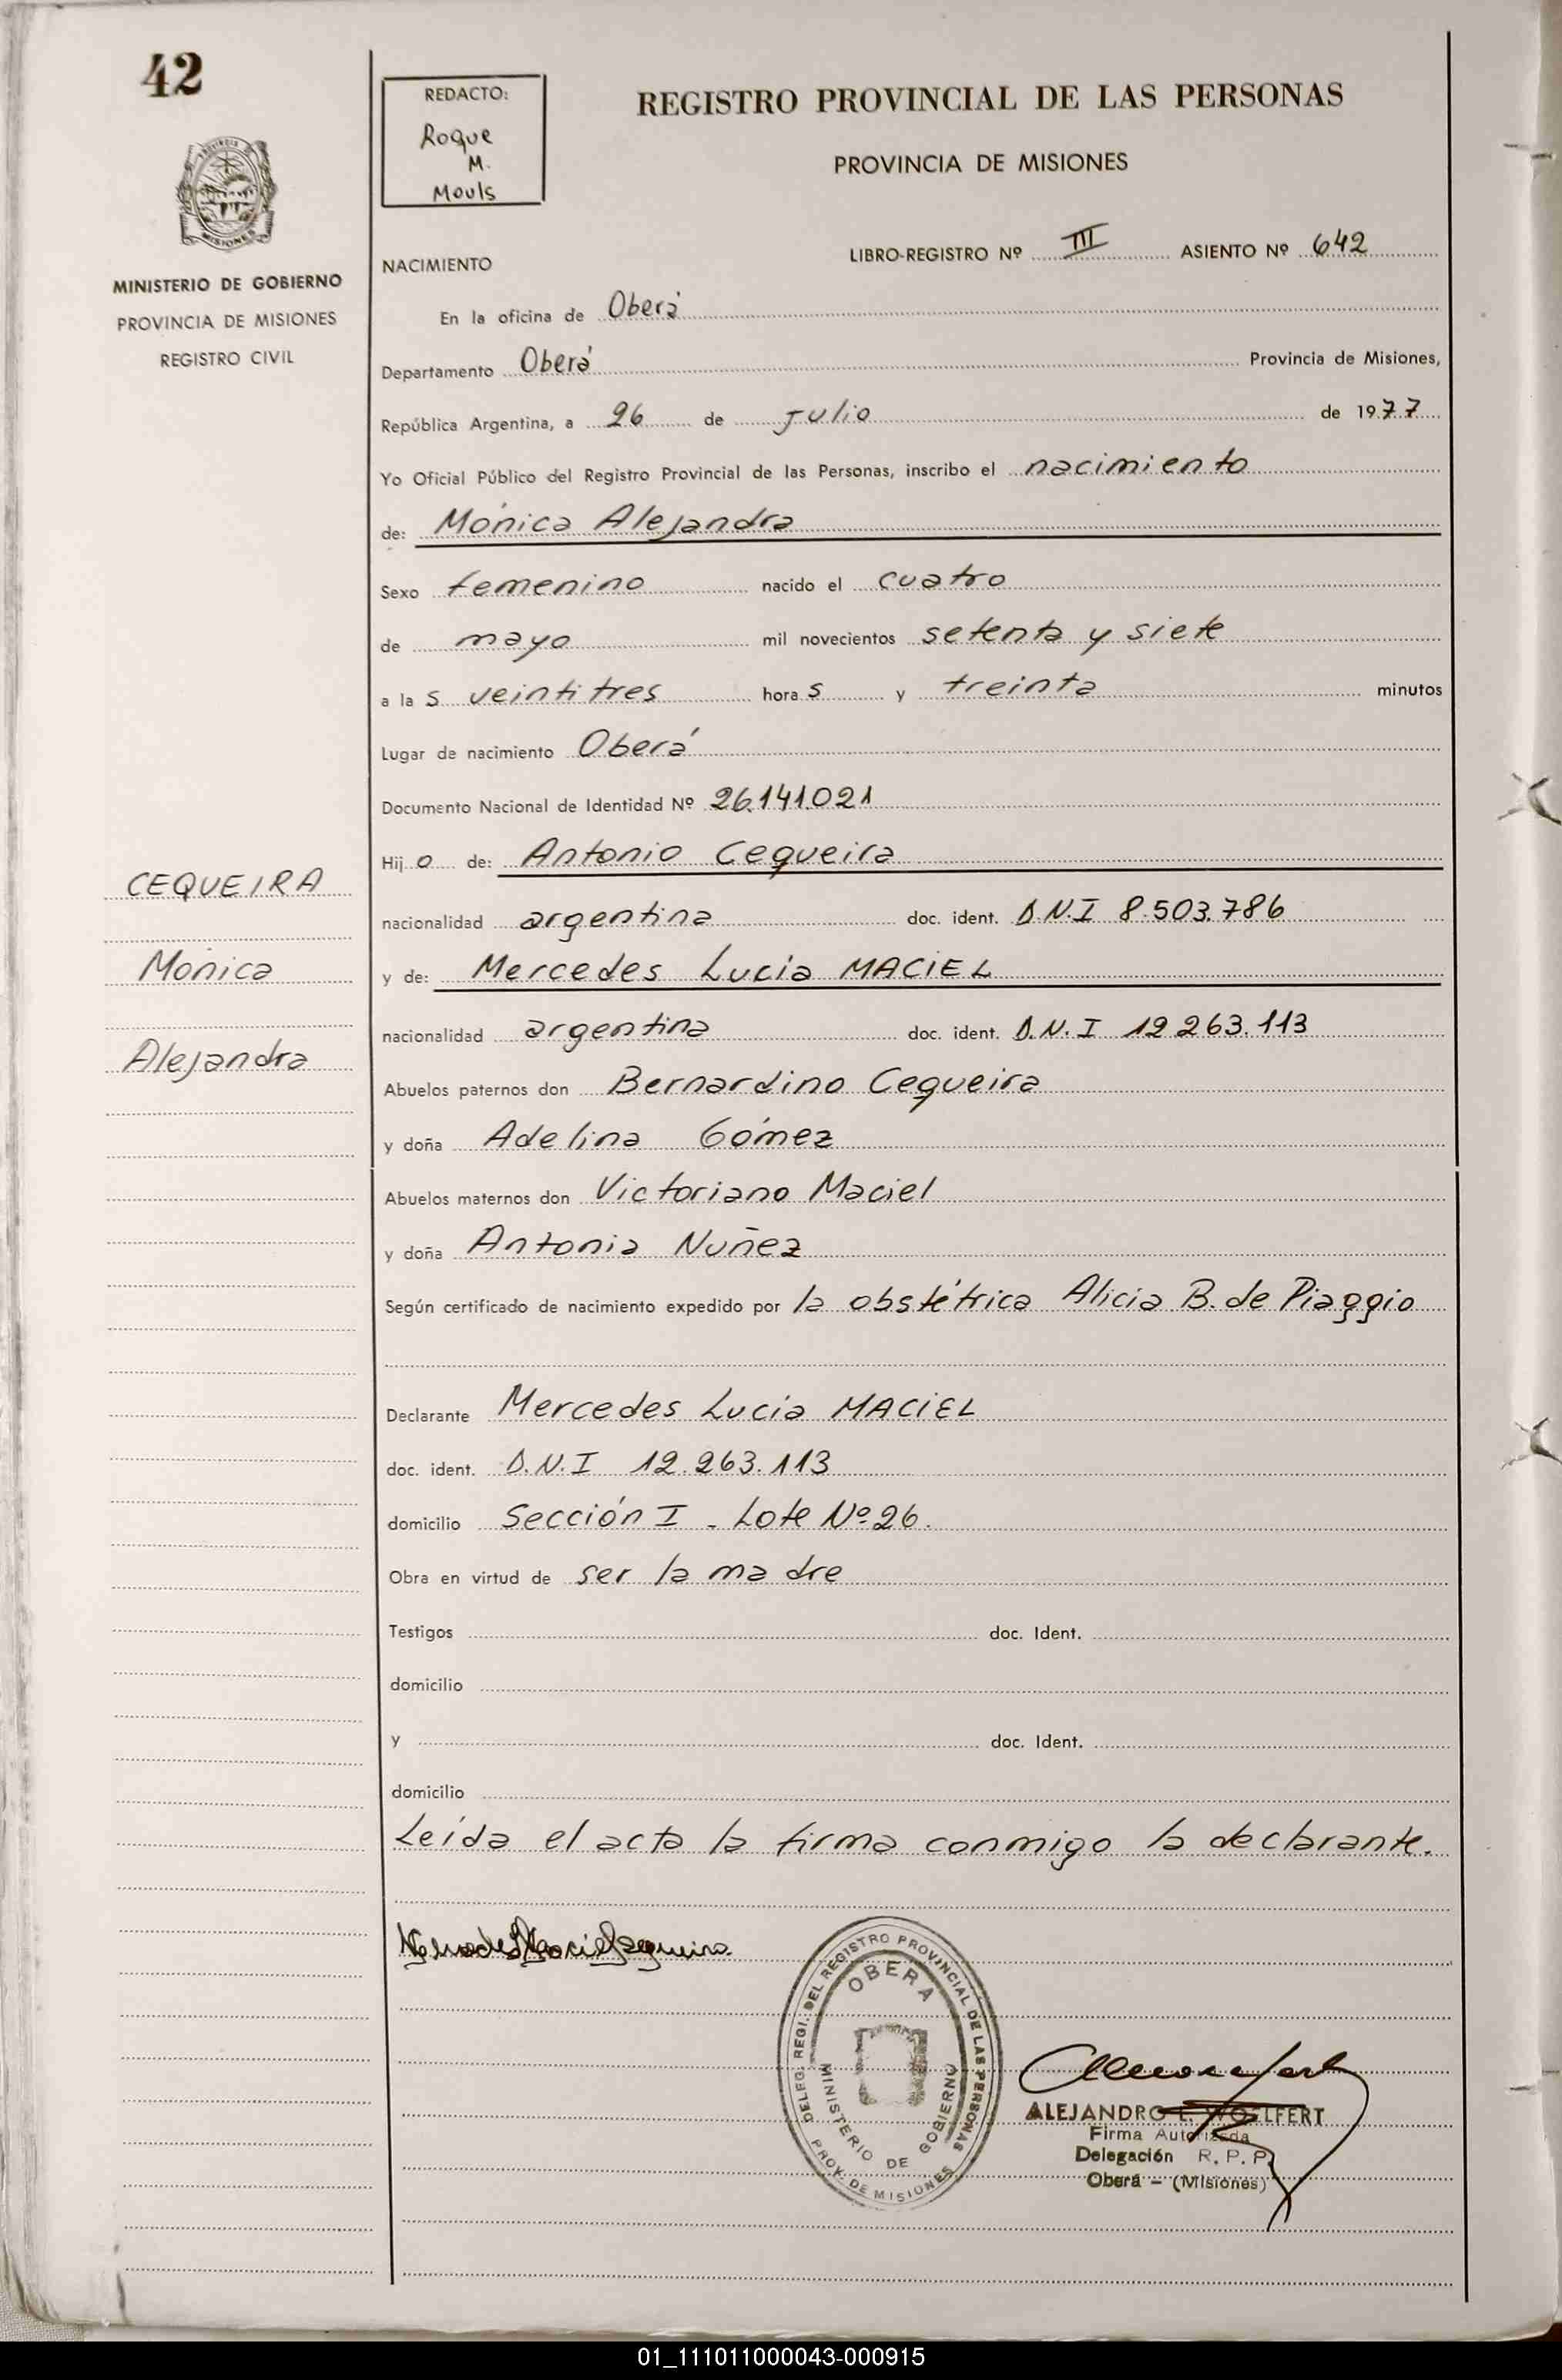 42
REDACTO:
Roque
M.
Mouls
REGISTRO PROVINCIAL DE LAS PERSONAS
PROVINCIA DE MISIONES
PROVINCIA DE
MISIONES
MINISTERIO DE GOBIERNO
PROVINCIA DE MISIONES
REGISTRO CIVIL
NACIMIENTO
LIBRO-REGISTRO Nº III ASIENTO Nº 642
En la oficina de Oberá
Departamento Oberá Provincia de Misiones,
República Argentina, a 26 de Julio de 1977
Yo Oficial Público del Registro Provincial de las Personas, inscribo el nacimiento
de: Mónica Alejandra
Sexo femenino nacido el cuatro
de mayo mil novecientos setenta y siete
a la s veintitres hora s y treinta minutos
Lugar de nacimiento Oberá
Documento Nacional de Identidad Nº 26.141.021
Hij o de: Antonio Cequeira
CEQUEIRA
nacionalidad argentina doc. ident. D.N.I 8.503.786
Mónica
y de: Mercedes Lucia MACIEL
nacionalidad argentina doc. ident. D.N.I 12.263.113
Alejandra
Abuelos paternos don Bernardino Cequeira
y doña Adelina Gómez
Abuelos maternos don Victoriano Maciel
y doña Antonia Nuñez
Según certificado de nacimiento expedido por la obstétrica Alicia B. de Piaggio
Declarante Mercedes Lucia MACIEL
doc. ident. D.N.I 12.263.113
domicilio Sección I - Lote Nº 26.
Obra en virtud de ser la madre
Testigos doc. Ident.
domicilio
y doc. Ident.
domicilio
Leída el acta la firma conmigo la declarante.
DELEG. REGI. DEL REGISTRO PROVINCIAL DE LAS PERSONAS
OBERA
MINISTERIO DE GOBIERNO
PROV. DE MISIONES
ALEJANDRO E. WOELFERT
Firma Autorizada
Delegación R. P. P.
Oberá - (Misiones)
01_111011000043-000915